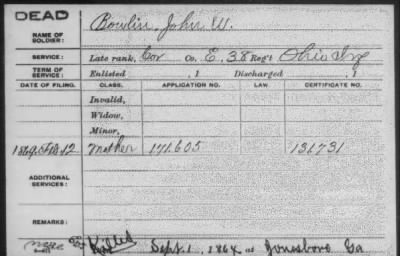 DEAD
NAME OF SOLDIER: Bowlin, John W.
SERVICE: Late rank, Cor Co. E, 38 Reg't Ohio Inf
TERM OF SERVICE: Enlisted , 1 Discharged , 1
DATE OF FILING. CLASS. APPLICATION NO. LAW. CERTIFICATE NO.
Invalid,
Widow,
Minor,
1869 Feb 12 Mother 171.605 131731
ADDITIONAL SERVICES:
REMARKS: Killed Sept. 1, 1864 at Jonesboro Ga